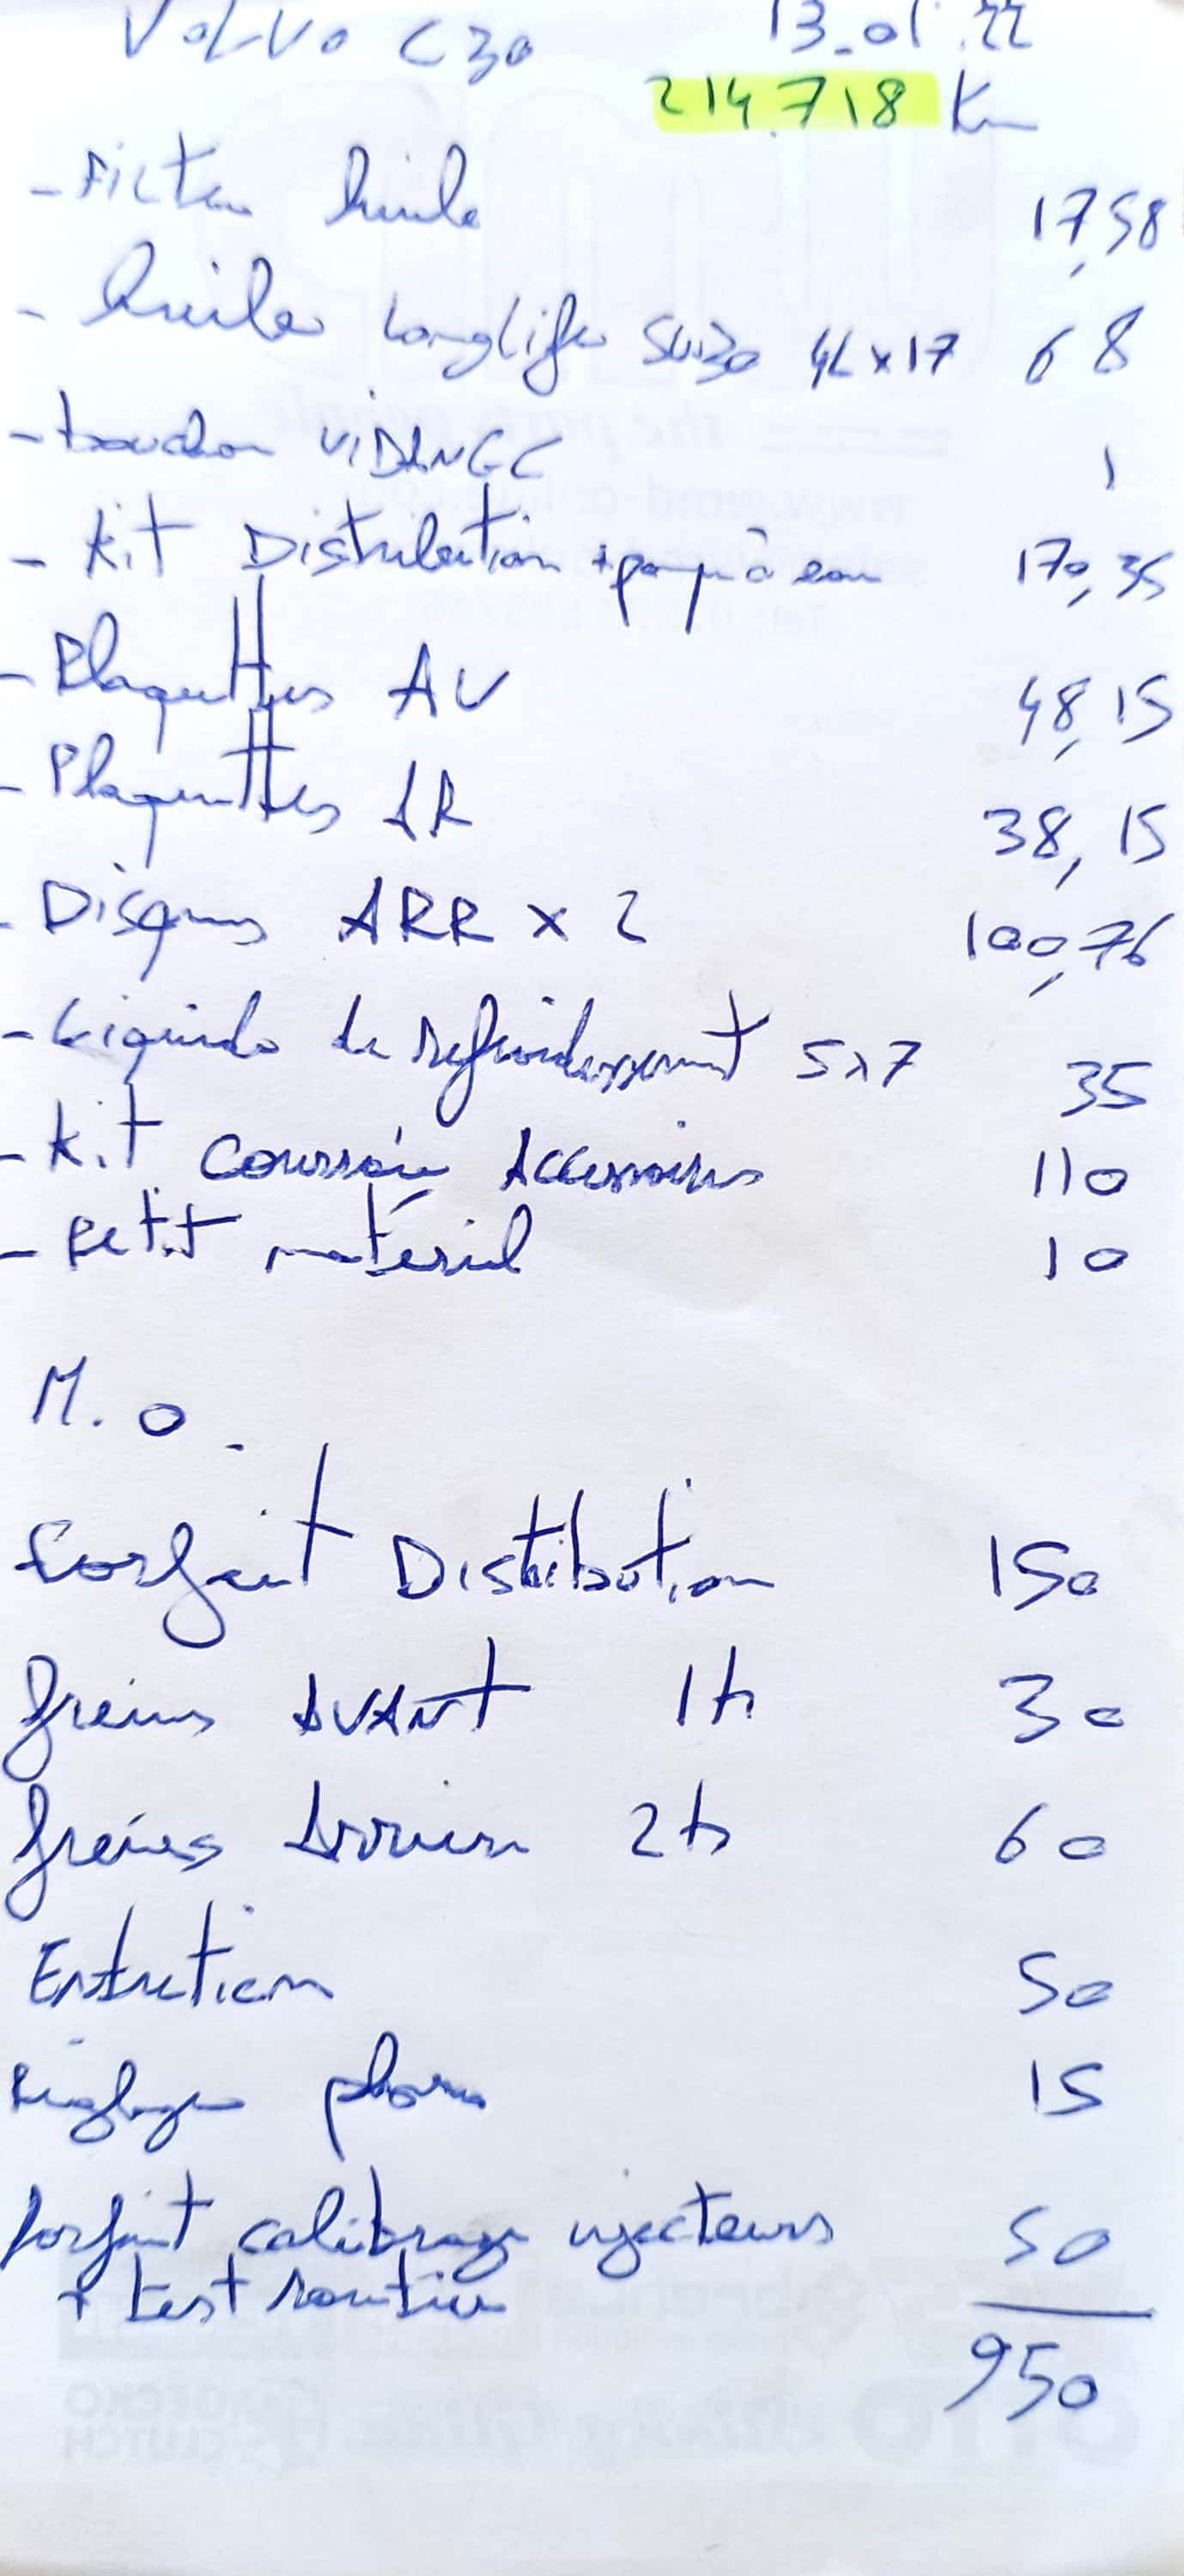 VOLVO C30 13.01.22
214.718 Km
- Filtre huile 17,58
- huile Longlife 5W30 4L x 17 68
- bouchon VIDANGE 1
- Kit Distribution + pompe à eau 170,35
- Plaquettes AV 48,15
- Plaquettes AR 38,15
- Disques ARR x 2 100,76
- Liquide de refroidissement 5x7 35
- Kit courroie Accessoires 110
- Petit matériel 10
M.O.
Forfait Distribution 150
freins AVANT 1h 30
freins Arrière 2h 60
Entretien 50
Réglage phares 15
forfait calibrage injecteurs 50
+ test routier
950